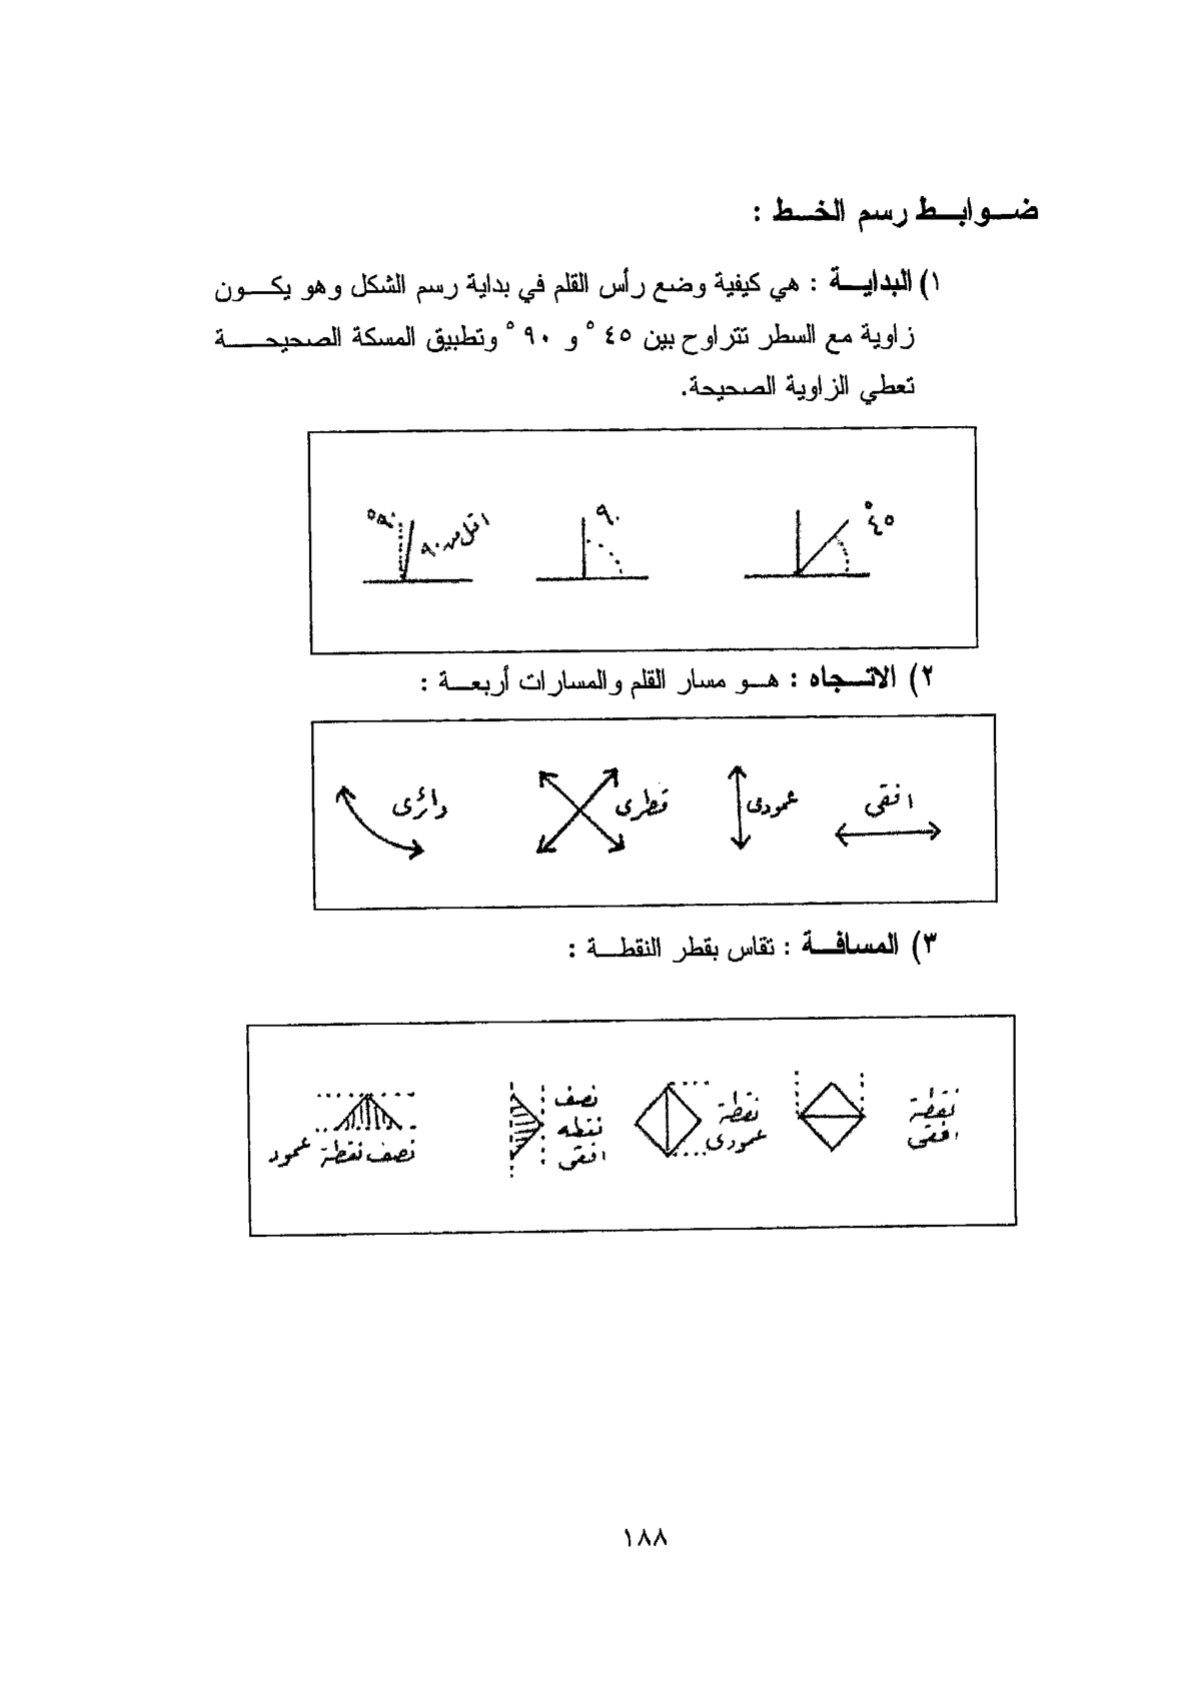 ضوابط رسم الخط :
١) البداية : هي كيفية وضع رأس القلم في بداية رسم الشكل وهو يكون
زاوية مع السطر تتراوح بين ٤٥ ° و ٩٠ ° وتطبيق المسكة الصحيحة
تعطي الزاوية الصحيحة.
٤٥°
٩٠
اقل من ٩٠
٩٠°
٢) الاتجاه : هو مسار القلم والمسارات أربعة :
افقى
عمودى
قطرى
دائرى
٣) المسافة : تقاس بقطر النقطة :
نقطة
افقى
نقطة
عمودى
نصف
نقطه
افقى
نصف نقطة عمود
١٨٨